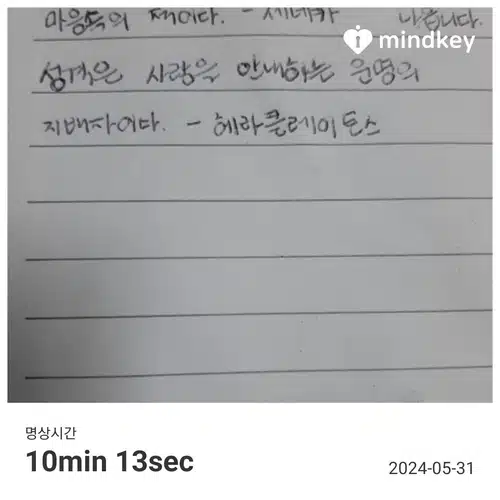 마음속의 적이다. - 세네카 나옵니다.
mindkey
성격은 사람을 안내하는 운명의
지배자이다. - 헤라클레이토스
명상시간
10min 13sec
2024-05-31